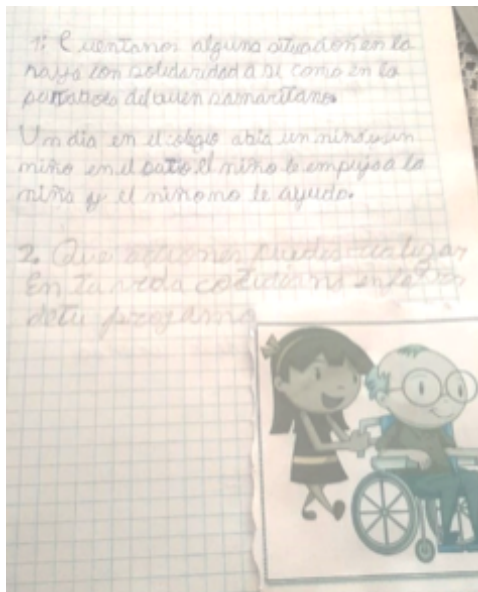 1: Cuentanos alguna situación en la
haya con solidaridad a si como en la
parabola del buen samaritano.
Un dia en el colegio abia un niño y un
niño en el patio el niño le empujo a la
niña y el niño no le ayudo.
2. Que acciones puedes realizar
En tu vida cotidiana en favor
de tu progimo